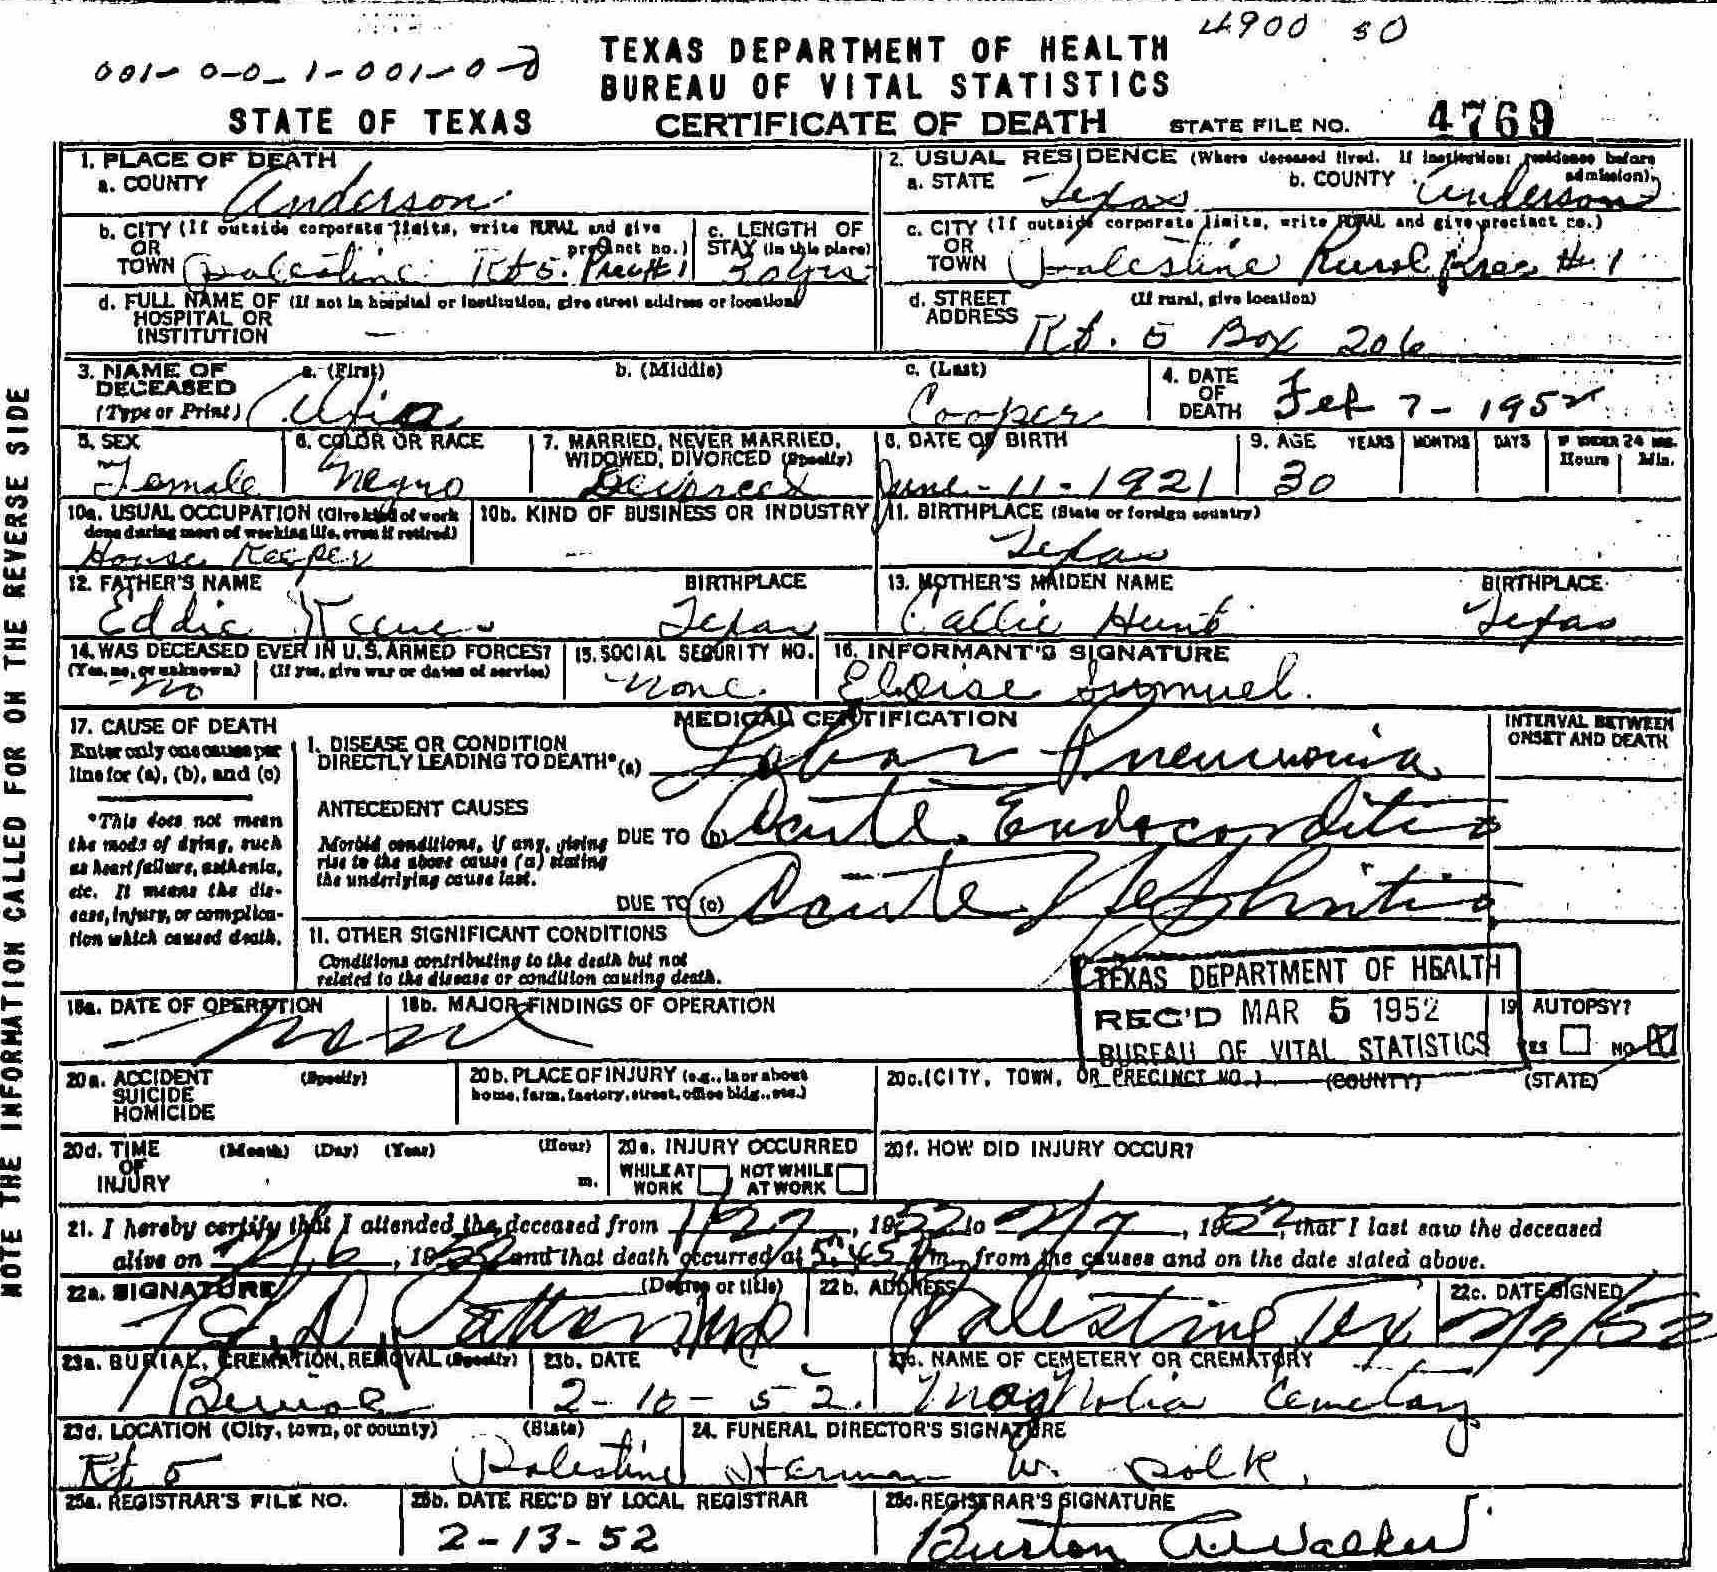 4900 50
001-0-0-1-001-0-0
TEXAS DEPARTMENT OF HEALTH
BUREAU OF VITAL STATISTICS
STATE OF TEXAS CERTIFICATE OF DEATH STATE FILE NO. 4769
NOTE THE INFORMATION CALLED FOR ON THE REVERSE SIDE
1. PLACE OF DEATH
a. COUNTY Anderson
2. USUAL RESIDENCE (Where deceased lived. If institution: residence before admission).
a. STATE Texas b. COUNTY Anderson
b. CITY (If outside corporate limits, write RURAL and give precinct no.)
OR TOWN Palestine Rt 5. Prect 1
c. LENGTH OF STAY (in this place) 30 yrs
c. CITY (If outside corporate limits, write RURAL and give precinct no.)
OR TOWN Palestine Rural Prec # 1
d. FULL NAME OF (If not in hospital or institution, give street address or location)
HOSPITAL OR INSTITUTION —
d. STREET ADDRESS (If rural, give location)
Rt. 5 Box 206
3. NAME OF DECEASED (Type or Print)
a. (First) b. (Middle) c. (Last) Cooper
4. DATE OF DEATH Feb 7-1952
5. SEX Female
6. COLOR OR RACE Negro
7. MARRIED, NEVER MARRIED, WIDOWED, DIVORCED (Specify)
8. DATE OF BIRTH June-11-1921
9. AGE YEARS MONTHS DAYS IF UNDER 24 HRS. Hours Min.
30
10a. USUAL OCCUPATION (Give kind of work done during most of working life, even if retired)
House Keeper
10b. KIND OF BUSINESS OR INDUSTRY —
11. BIRTHPLACE (State or foreign country)
Texas
12. FATHER'S NAME BIRTHPLACE
Eddie Texas
13. MOTHER'S MAIDEN NAME BIRTHPLACE
Callie Hunt Texas
14. WAS DECEASED EVER IN U.S. ARMED FORCES?
(Yes, no, or unknown) (If yes, give war or dates of service)
No
15. SOCIAL SECURITY NO. None
16. INFORMANT'S SIGNATURE
Eloise Sumuel.
MEDICAL CERTIFICATION
INTERVAL BETWEEN ONSET AND DEATH
17. CAUSE OF DEATH
Enter only one cause per line for (a), (b), and (c)
*This does not mean the mode of dying, such as heart failure, asthenia, etc. It means the disease, injury, or complication which caused death.
I. DISEASE OR CONDITION
DIRECTLY LEADING TO DEATH*(a) Lobar Pneumonia
ANTECEDENT CAUSES
Morbid conditions, if any, giving rise to the above cause (a) stating the underlying cause last.
DUE TO (b) Acute Endocarditis
DUE TO (c) Acute Nephritis
11. OTHER SIGNIFICANT CONDITIONS
Conditions contributing to the death but not related to the disease or condition causing death.
TEXAS DEPARTMENT OF HEALTH
REC'D MAR 5 1952
BUREAU OF VITAL STATISTICS
18a. DATE OF OPERATION 18b. MAJOR FINDINGS OF OPERATION
None
19. AUTOPSY?
YES NO X
20a. ACCIDENT SUICIDE HOMICIDE (Specify)
20b. PLACE OF INJURY (e.g., in or about home, farm, factory, street, office bldg., etc.)
20c. (CITY, TOWN, OR PRECINCT NO.) (COUNTY) (STATE)
20d. TIME OF INJURY (Month) (Day) (Year) (Hour) m.
20e. INJURY OCCURRED
WHILE AT WORK NOT WHILE AT WORK
20f. HOW DID INJURY OCCUR?
21. I hereby certify that I attended the deceased from 1/27, 1952 to 2/7, 1952, that I last saw the deceased
alive on 2/6, 1952 and that death occurred at 5:45 m., from the causes and on the date stated above.
22a. SIGNATURE (Degree or title) 22b. ADDRESS 22c. DATE SIGNED
Palestine Tex 2/7/52
23a. BURIAL, CREMATION, REMOVAL (Specify) Burial
23b. DATE 2-10-52.
23c. NAME OF CEMETERY OR CREMATORY
Magnolia Cemetery
23d. LOCATION (City, town, or county) (State)
Rt 5 Palestine
24. FUNERAL DIRECTOR'S SIGNATURE
Herman W. Polk.
25a. REGISTRAR'S FILE NO.
25b. DATE REC'D BY LOCAL REGISTRAR
2-13-52
25c. REGISTRAR'S SIGNATURE
Burton A. Walker